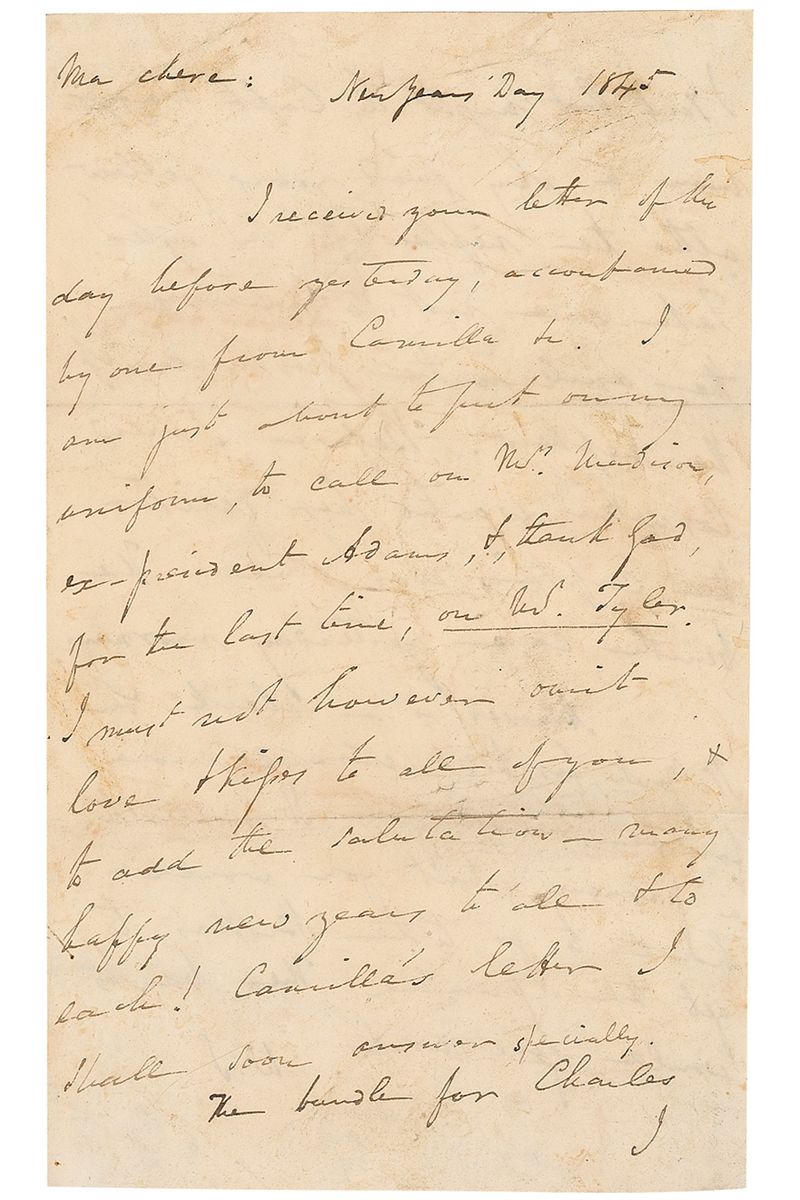 Ma chere:
New Years' Day 1845.
I received your letter of the
day before yesterday, accompanied
by one from Camilla &c. I
am just about to put on my
uniform, to call on Mrs. Madison,
ex-president Adams, &, thank God,
for the last time, on Mr. Tyler.
I must not however omit
love & kisses to all of you, &
to add the salutation — many
happy new years to all & to
each! Camilla's letter I
shall soon answer specially.
The bundle for Charles
I